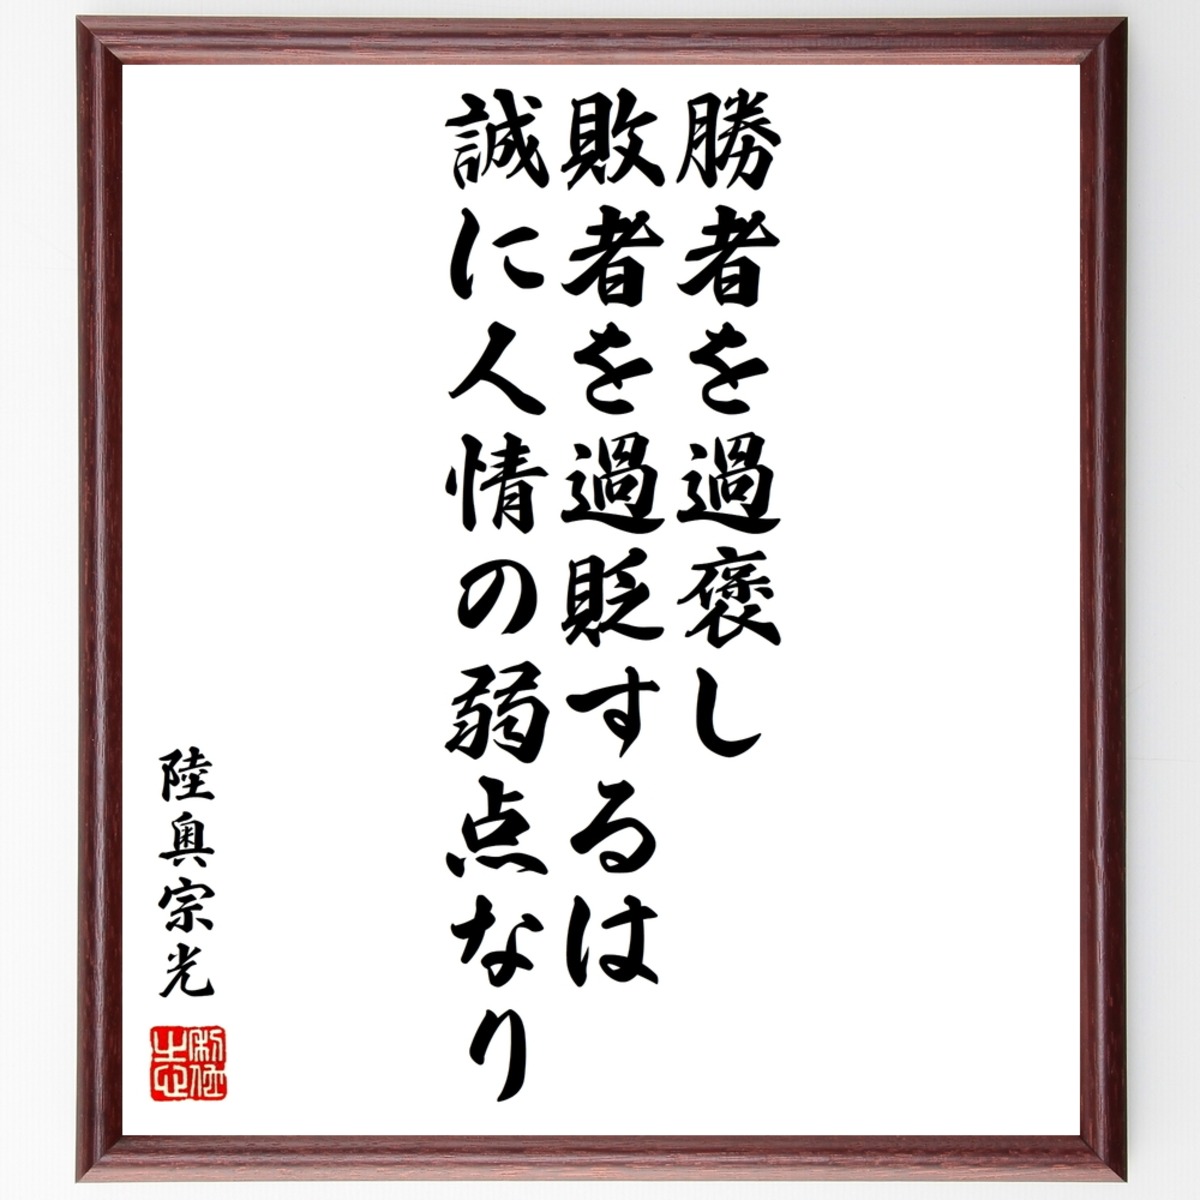 勝者を過褒し
敗者を過貶するは
誠に人情の弱点なり
陸奥宗光